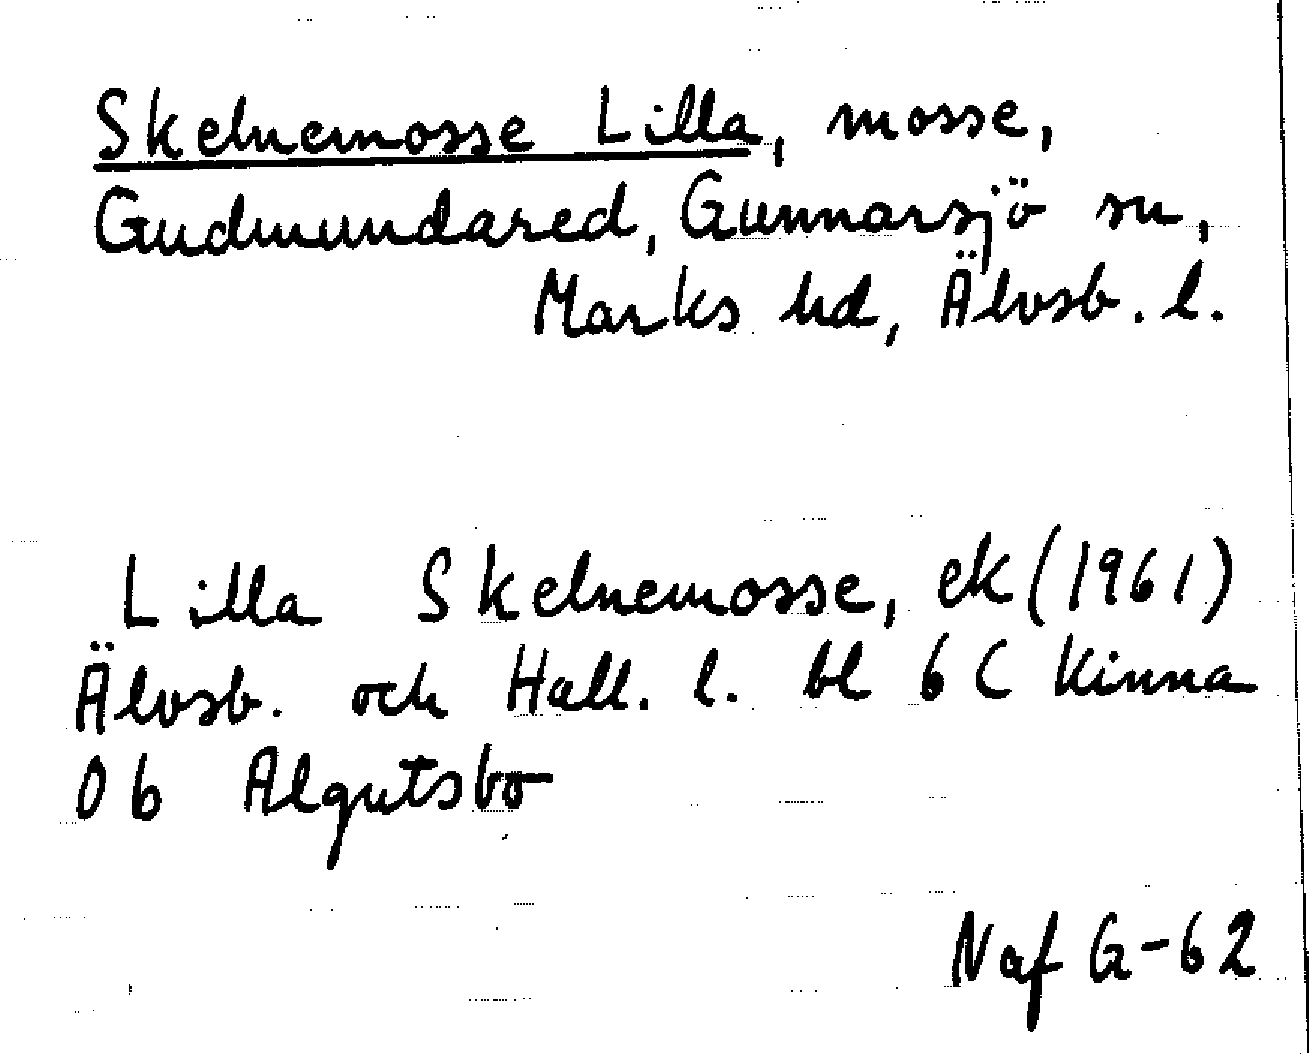 Skelnemosse Lilla, mosse,
Gudmundared, Gunnarsjö sn,
Marks hd, Älvsb. l.
Lilla Skelnemosse, ek (1961)
Älvsb. och Hall. l. bl 6 C Kinna
0 b Algutsbo
Naf G-62